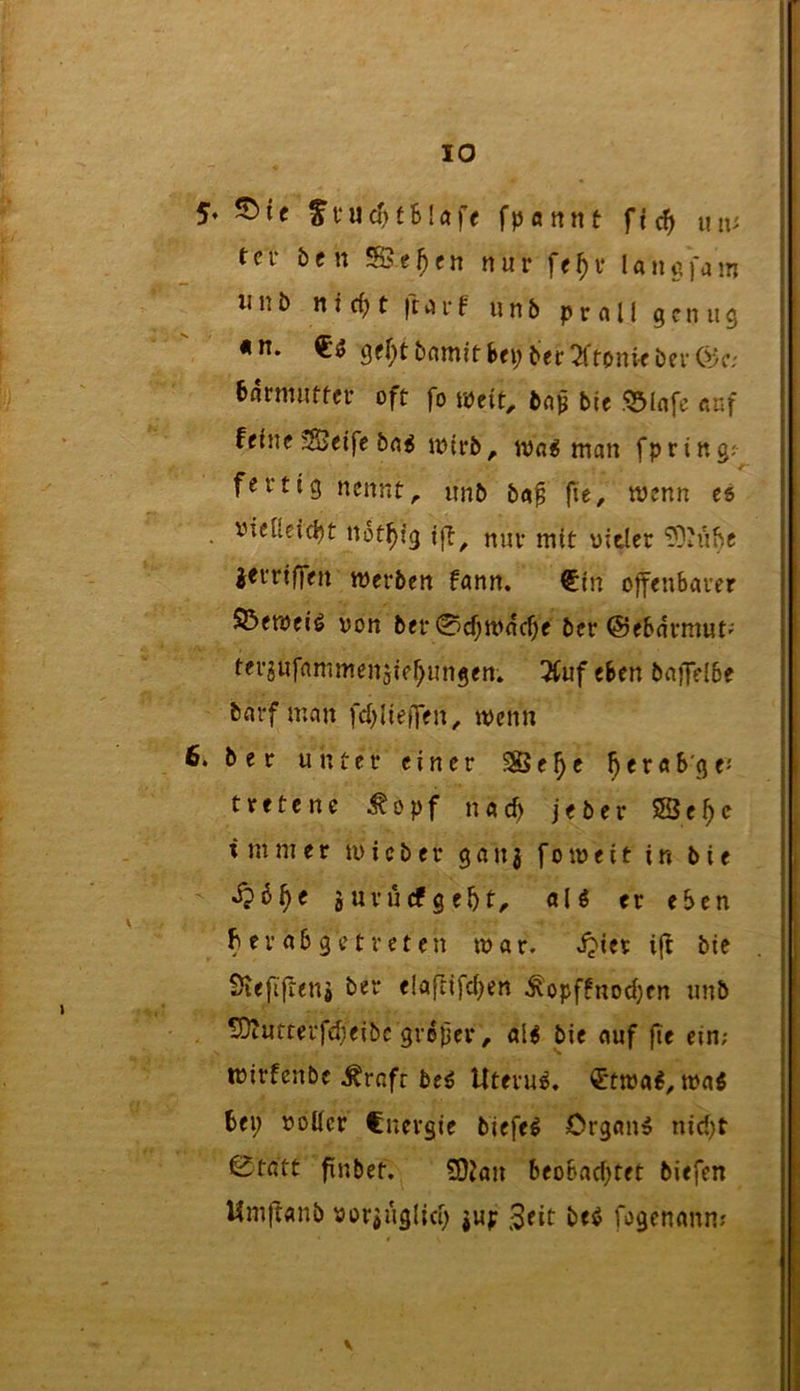 10
5. Die Fruchtblase spannt sich un-
ter den Wehen nur sehr langsam
und nicht stark und prall genug
an. Es geht damit bey der Atonie der Ge-
bärmutter oft so weit, daß die Blase auf
keine Weise das wird, was man spring-
fertig nennt, und daß sie, wenn es
vielleicht nöthig ist, nur mit vieler Mühe
zerrissen werden kann. Ein offenbarer
Beweis von der Schwäche der Gebärmut-
terzusammenziehungen. Auf eben dasselbe
darf man schliessen, wenn
6. der unter einer Wehe herabge-
tretene Kopf nach jeder Wehe
immer wieder ganz soweit in die
Höhe zurückgeht, als er eben
herabgetreten war. Hier ist die
Resistenz der elastischen Kopfknochen und
Mutterscheide größer, als die auf sie ein-
wirkende Kraft des Uterus. Etwas, was
bey voller Energie dieses Organs nicht
Statt findet. Man beobachtet diesen
Umstand vorzüglich zur Zeit des sogenann-